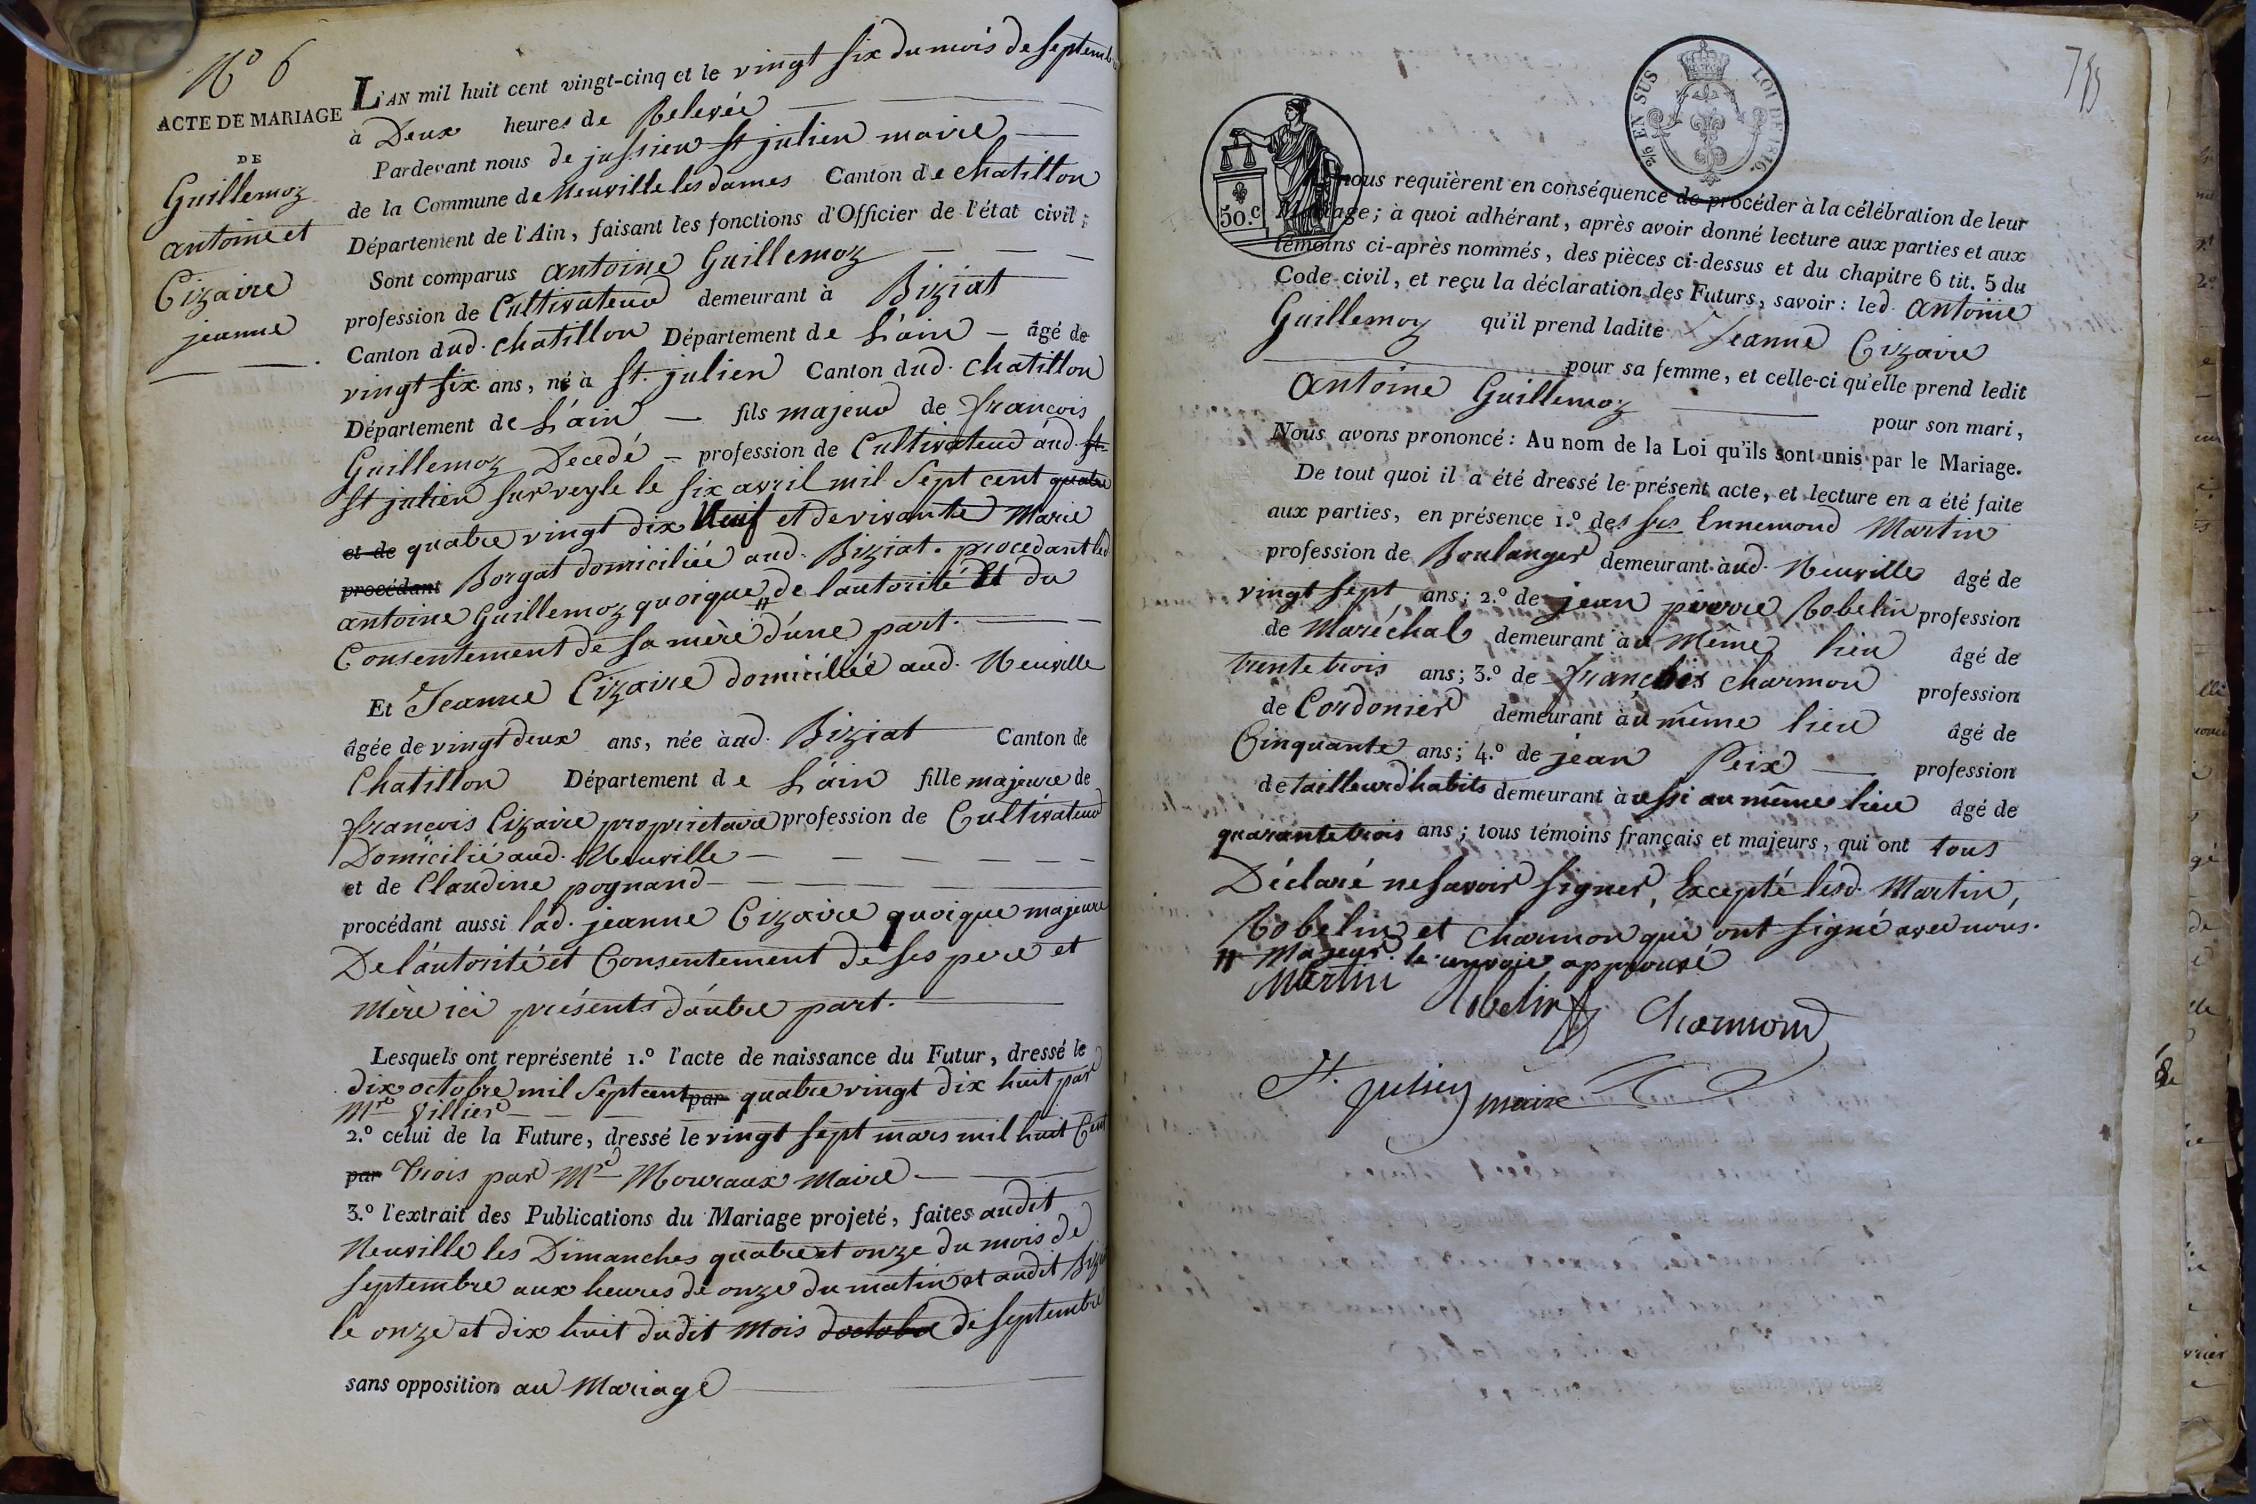 N.º 6
ACTE DE MARIAGE
DE
Guillemoz
antoine et
Cizaire
jeanne
L'AN mil huit cent vingt-cinq et le vingt six du mois de Septemb
à Deux heures de Relevée
Pardevant nous de jussieu St julien maire
de la Commune de Neuville les dames Canton de chatillon
Département de l'Ain, faisant les fonctions d'Officier de l'état civil;
Sont comparus antoine Guillemoz
profession de Cultivateur demeurant à Biziat
Canton dud. chatillon Département de L'ain âgé de
vingt six ans, né à St. julien Canton dud. chatillon
Département de L'ain fils majeur de françois
Guillemoz Decedé profession de Cultivateur aud. St
St julien sur veyle le six avril mil Sept cent quatre
et de quatre vingt dix Neuf et de vivante Marie
procédant Borgat domiciliée aud. Biziat. procedant led
antoine Guillemoz quoique de l'autorité Et du
Consentement de sa mère d'une part.
Et Jeanne Cizaire domiciliée aud. Neuville
âgée de vingt deux ans, née à ad. Biziat Canton de
Chatillon Département de L'ain fille majeure de
françois Cizaire propriétaire profession de Cultivateur
Domicilié aud. Neuville
et de Claudine pognand
procédant aussi lad. jeanne Cizaire quoique majeure
De l'autorité et Consentement de ses pere et
Mère ici présents d'autre part.
Lesquels ont représenté 1.º l'acte de naissance du Futur, dressé le
dix octobre mil Sept cent par quatre vingt dix huit par
Mre Villier
2.º celui de la Future, dressé le vingt sept mars mil huit Cent
par trois par Mre Mouraux Maire
3.º l'extrait des Publications du Mariage projeté, faites audit
Neuville les Dimanches quatre et onze du mois de
septembre aux heures de onze du matin et audit Bizia
le onze et dix huit dudit mois d'octobre de septembre
sans opposition au Mariage
EN SUS
LOI DE 1816.
50.c
nous requièrent en conséquence de procéder à la célébration de leur
Mariage; à quoi adhérant, après avoir donné lecture aux parties et aux
témoins ci-après nommés, des pièces ci-dessus et du chapitre 6 tit. 5 du
Code civil, et reçu la déclaration des Futurs, savoir: led. antoine
Guillemoz qu'il prend ladite Jeanne Cizaire
pour sa femme, et celle-ci qu'elle prend ledit
antoine Guillemoz
pour son mari,
Nous avons prononcé: Au nom de la Loi qu'ils sont unis par le Mariage.
De tout quoi il a été dressé le présent acte, et lecture en a été faite
aux parties, en présence 1.º des srs Ennemond Martin
profession de Boulanger demeurant aud. Neuville âgé de
vingt sept ans; 2.º de jean pierre Robelin profession
de Maréchal demeurant au Même lieu âgé de
trente trois ans; 3.º de françois charmon profession
de Cordonier demeurant au même lieu âgé de
Cinquante ans; 4.º de jean Peix profession
de tailleur d'habits demeurant aussi au même lieu âgé de
quarante trois ans; tous témoins français et majeurs, qui ont tous
Déclaré ne savoir signer, Excepté lesd. Martin,
Robelin et charmon qui ont signé avec nous.
Majeur. le renvoie approuvé
Martin Robelin Charmond
St. julien maire